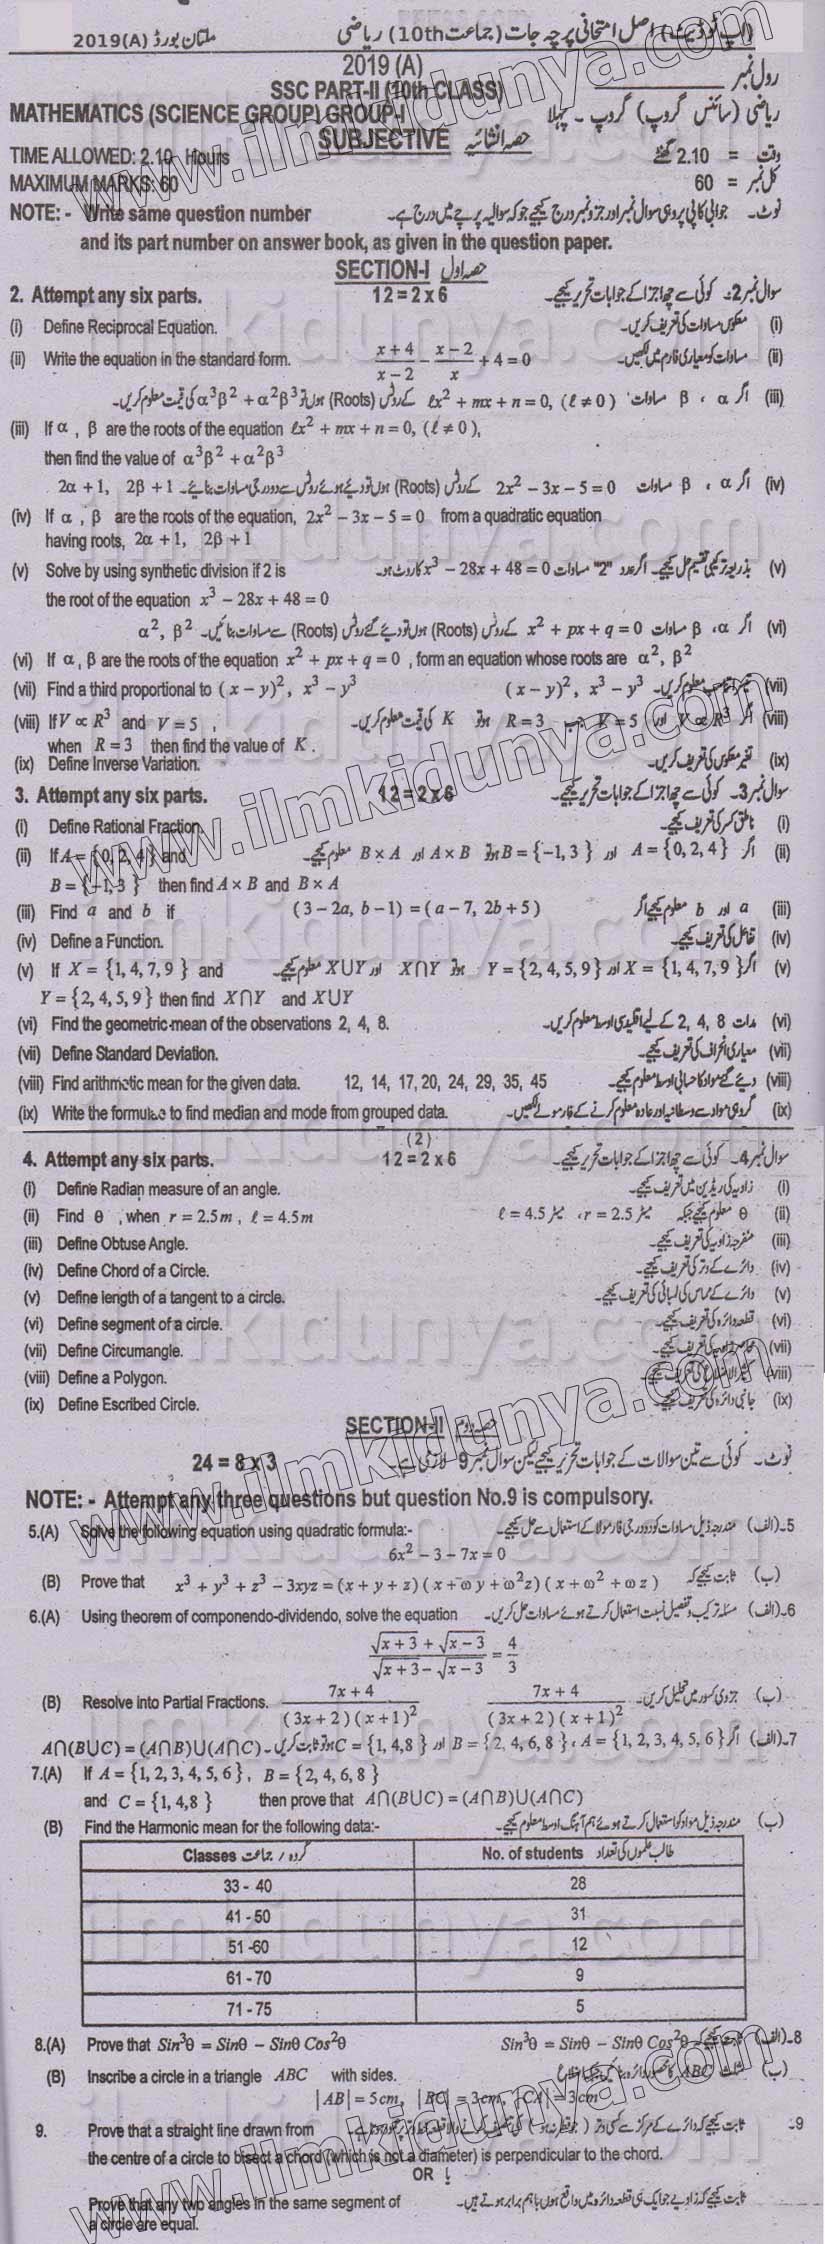 (اپ ٹو ڈیٹ) اصل امتحانی پرچہ جات (جماعت 10th) ریاضی ملتان بورڈ 2019(A)
2019 (A)
رول نمبر
SSC PART-II (10th CLASS)
MATHEMATICS (SCIENCE GROUP) GROUP-I ریاضی (سائنس گروپ) گروپ ۔ پہلا
SUBJECTIVE حصہ انشائیہ
TIME ALLOWED: 2.10 Hours وقت = 2.10 گھنٹے
MAXIMUM MARKS: 60 کل نمبر = 60
NOTE: - Write same question number نوٹ۔ جوابی کاپی پر وہی سوال نمبر اور جزو نمبر درج کیجیے جو کہ سوالیہ پرچے میں درج ہے۔
and its part number on answer book, as given in the question paper.
SECTION-I حصہ اول
2. Attempt any six parts. 12 = 2 x 6 سوال نمبر 2۔ کوئی سے چھ اجزا کے جوابات تحریر کیجیے۔
(i) Define Reciprocal Equation. (i) معکوس مساوات کی تعریف کریں۔
(ii) Write the equation in the standard form. (x+4)/(x−2) − (x−2)/x + 4 = 0 (ii) مساوات کو معیاری فارم میں لکھیں۔
(iii) اگر α ، β مساوات ℓx² + mx + n = 0, (ℓ ≠ 0) کے روٹس (Roots) ہوں تو α³β² + α²β³ کی قیمت معلوم کریں۔
(iii) If α , β are the roots of the equation ℓx² + mx + n = 0, (ℓ ≠ 0),
then find the value of α³β² + α²β³
(iv) اگر α ، β مساوات 2x² − 3x − 5 = 0 کے روٹس (Roots) ہوں تو دیے ہوئے روٹس سے دو درجی مساوات بنائیے۔ 2α + 1, 2β + 1
(iv) If α , β are the roots of the equation, 2x² − 3x − 5 = 0 from a quadratic equation
having roots, 2α + 1, 2β + 1
(v) Solve by using synthetic division if 2 is (v) بذریعہ ترکیبی تقسیم حل کیجیے۔ اگر عدد "2" مساوات x³ − 28x + 48 = 0 کا روٹ ہو۔
the root of the equation x³ − 28x + 48 = 0
(vi) اگر α، β مساوات x² + px + q = 0 کے روٹس (Roots) ہوں تو دیے گئے روٹس (Roots) سے مساوات بنائیں۔ α², β²
(vi) If α , β are the roots of the equation x² + px + q = 0 , form an equation whose roots are α², β²
(vii) Find a third proportional to (x − y)², x³ − y³ (vii) تیسرا تناسب معلوم کریں۔ (x − y)², x³ − y³
(viii) If V ∝ R³ and V = 5 , (viii) اگر V ∝ R³ اور V = 5 جب R = 3 ہو تو K کی قیمت معلوم کریں۔
when R = 3 then find the value of K .
(ix) Define Inverse Variation. (ix) تغیر معکوس کی تعریف کریں۔
3. Attempt any six parts. 12 = 2 x 6 سوال نمبر 3۔ کوئی سے چھ اجزا کے جوابات تحریر کیجیے۔
(i) Define Rational Fraction. (i) ناطق کسر کی تعریف کیجیے۔
(ii) If A = {0, 2, 4} and (ii) اگر A = {0, 2, 4} اور B = {−1, 3} ہو تو A × B اور B × A معلوم کیجیے۔
B = {−1, 3} then find A × B and B × A
(iii) Find a and b if (3 − 2a, b − 1) = (a − 7, 2b + 5) (iii) a اور b معلوم کیجیے اگر
(iv) Define a Function. (iv) تفاعل کی تعریف کیجیے۔
(v) If X = {1, 4, 7, 9} and (v) اگر X = {1, 4, 7, 9} اور Y = {2, 4, 5, 9} ہو تو X∩Y اور X∪Y معلوم کیجیے۔
Y = {2, 4, 5, 9} then find X∩Y and X∪Y
(vi) Find the geometric mean of the observations 2, 4, 8. (vi) مدات 2, 4, 8 کے لیے اقلیدسی اوسط معلوم کریں۔
(vii) Define Standard Deviation. (vii) معیاری انحراف کی تعریف کیجیے۔
(viii) Find arithmetic mean for the given data. 12, 14, 17, 20, 24, 29, 35, 45 (viii) دیے گئے مواد کا حسابی اوسط معلوم کیجیے۔
(ix) Write the formulae to find median and mode from grouped data. (ix) گروہی مواد سے وسطانیہ اور عادہ معلوم کرنے کے فارمولے لکھیں۔
(2)
4. Attempt any six parts. 12 = 2 x 6 سوال نمبر 4۔ کوئی سے چھ اجزا کے جوابات تحریر کیجیے۔
(i) Define Radian measure of an angle. (i) زاویہ کی ریڈین میں تعریف کیجیے۔
(ii) Find θ , when r = 2.5m , ℓ = 4.5m (ii) θ معلوم کیجیے جبکہ r = 2.5 میٹر، ℓ = 4.5 میٹر
(iii) Define Obtuse Angle. (iii) منفرجہ زاویہ کی تعریف کیجیے۔
(iv) Define Chord of a Circle. (iv) دائرے کے وتر کی تعریف کیجیے۔
(v) Define length of a tangent to a circle. (v) دائرے کے مماس کی لمبائی کی تعریف کیجیے۔
(vi) Define segment of a circle. (vi) قطعہ دائرہ کی تعریف کیجیے۔
(vii) Define Circumangle. (vii) محاصر زاویہ کی تعریف کیجیے۔
(viii) Define a Polygon. (viii) کثیر الاضلاع کی تعریف کیجیے۔
(ix) Define Escribed Circle. (ix) جانبی دائرہ کی تعریف کیجیے۔
SECTION-II حصہ دوم
24 = 8 x 3 نوٹ۔ کوئی سے تین سوالات کے جوابات تحریر کیجیے لیکن سوال نمبر 9 لازمی ہے۔
NOTE: - Attempt any three questions but question No.9 is compulsory.
5.(A) Solve the following equation using quadratic formula:- 5۔(الف) مندرجہ ذیل مساوات کو دو درجی فارمولا کے استعمال سے حل کیجیے۔
6x² − 3 − 7x = 0
(B) Prove that x³ + y³ + z³ − 3xyz = (x + y + z)(x + ωy + ω²z)(x + ω² + ωz) (ب) ثابت کیجیے کہ
6.(A) Using theorem of componendo-dividendo, solve the equation 6۔(الف) مسئلہ ترکیب و تفصیل نسبت استعمال کرتے ہوئے مساوات حل کریں۔
(√(x+3) + √(x−3))/(√(x+3) − √(x−3)) = 4/3
(B) Resolve into Partial Fractions. (7x + 4)/((3x + 2)(x + 1)²) (7x + 4)/((3x + 2)(x + 1)²) (ب) جزوی کسور میں تحلیل کریں۔
7۔(الف) اگر A = {1, 2, 3, 4, 5, 6}، B = {2, 4, 6, 8} اور C = {1, 4, 8} ہو تو ثابت کریں۔ A∩(B∪C) = (A∩B)∪(A∩C)
7.(A) If A = {1, 2, 3, 4, 5, 6}, B = {2, 4, 6, 8}
and C = {1, 4, 8} then prove that A∩(B∪C) = (A∩B)∪(A∩C)
(B) Find the Harmonic mean for the following data:- (ب) مندرجہ ذیل مواد کو استعمال کرتے ہوئے ہم آہنگ اوسط معلوم کیجیے۔
Classes گروہ / جماعت No. of students طالب علموں کی تعداد
33 - 40 28
41 - 50 31
51 -60 12
61 - 70 9
71 - 75 5
8.(A) Prove that Sin³θ = Sinθ − Sinθ Cos²θ 8۔(الف) ثابت کیجیے کہ Sin³θ = Sinθ − Sinθ Cos²θ
(B) Inscribe a circle in a triangle ABC with sides. (ب) مثلث ABC کا محصور دائرہ بنائیں جبکہ اضلاع
|AB| = 5cm, |BC| = 3cm, |CA| = 3cm
9. Prove that a straight line drawn from 9۔ ثابت کیجیے کہ دائرے کے مرکز سے کسی وتر (جو قطر نہ ہو) کی تنصیف کرنے والا قطعہ خط وتر پر عمود ہوتا ہے۔
the centre of a circle to bisect a chord (which is not a diameter) is perpendicular to the chord.
OR یا
Prove that any two angles in the same segment of ثابت کیجیے کہ زاویے جو ایک ہی قطعہ دائرہ میں واقع ہوں باہم برابر ہوتے ہیں۔
a circle are equal.
www.ilmkidunya.com